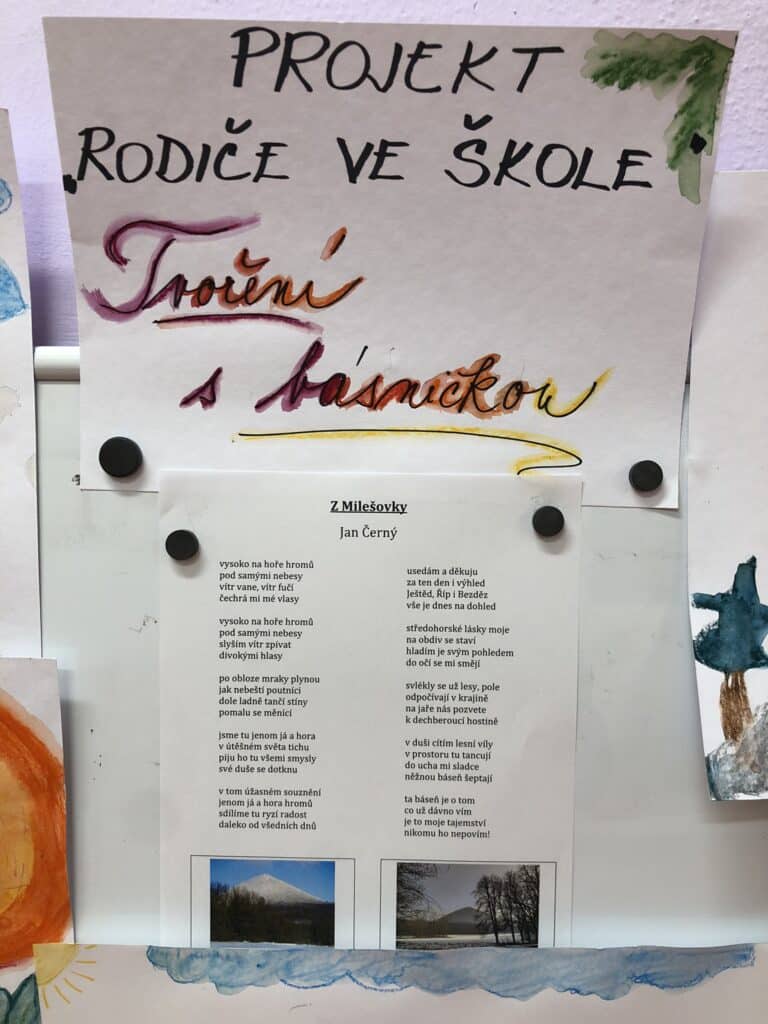 PROJEKT
RODIČE VE ŠKOLE
Tvoření
s básničkou
Z Milešovky
Jan Černý
vysoko na hoře hromů
pod samými nebesy
vítr vane, vítr fučí
čechrá mi mé vlasy
vysoko na hoře hromů
pod samými nebesy
slyším vítr zpívat
divokými hlasy
po obloze mraky plynou
jak nebeští poutníci
dole ladně tančí stíny
pomalu se měnící
jsme tu jenom já a hora
v útěšném světa tichu
piju ho tu všemi smysly
své duše se dotknu
v tom úžasném souznění
jenom já a hora hromů
sdílíme tu ryzí radost
daleko od všedních dnů
usedám a děkuju
za ten den i výhled
Ještěd, Říp i Bezděz
vše je dnes na dohled
středohorské lásky moje
na obdiv se staví
hladím je svým pohledem
do očí se mi smějí
svlékly se už lesy, pole
odpočívají v krajině
na jaře nás pozvete
k dechberoucí hostině
v duši cítím lesní víly
v prostoru tu tancují
do ucha mi sladce
něžnou báseň šeptají
ta báseň je o tom
co už dávno vím
je to moje tajemství
nikomu ho nepovím!